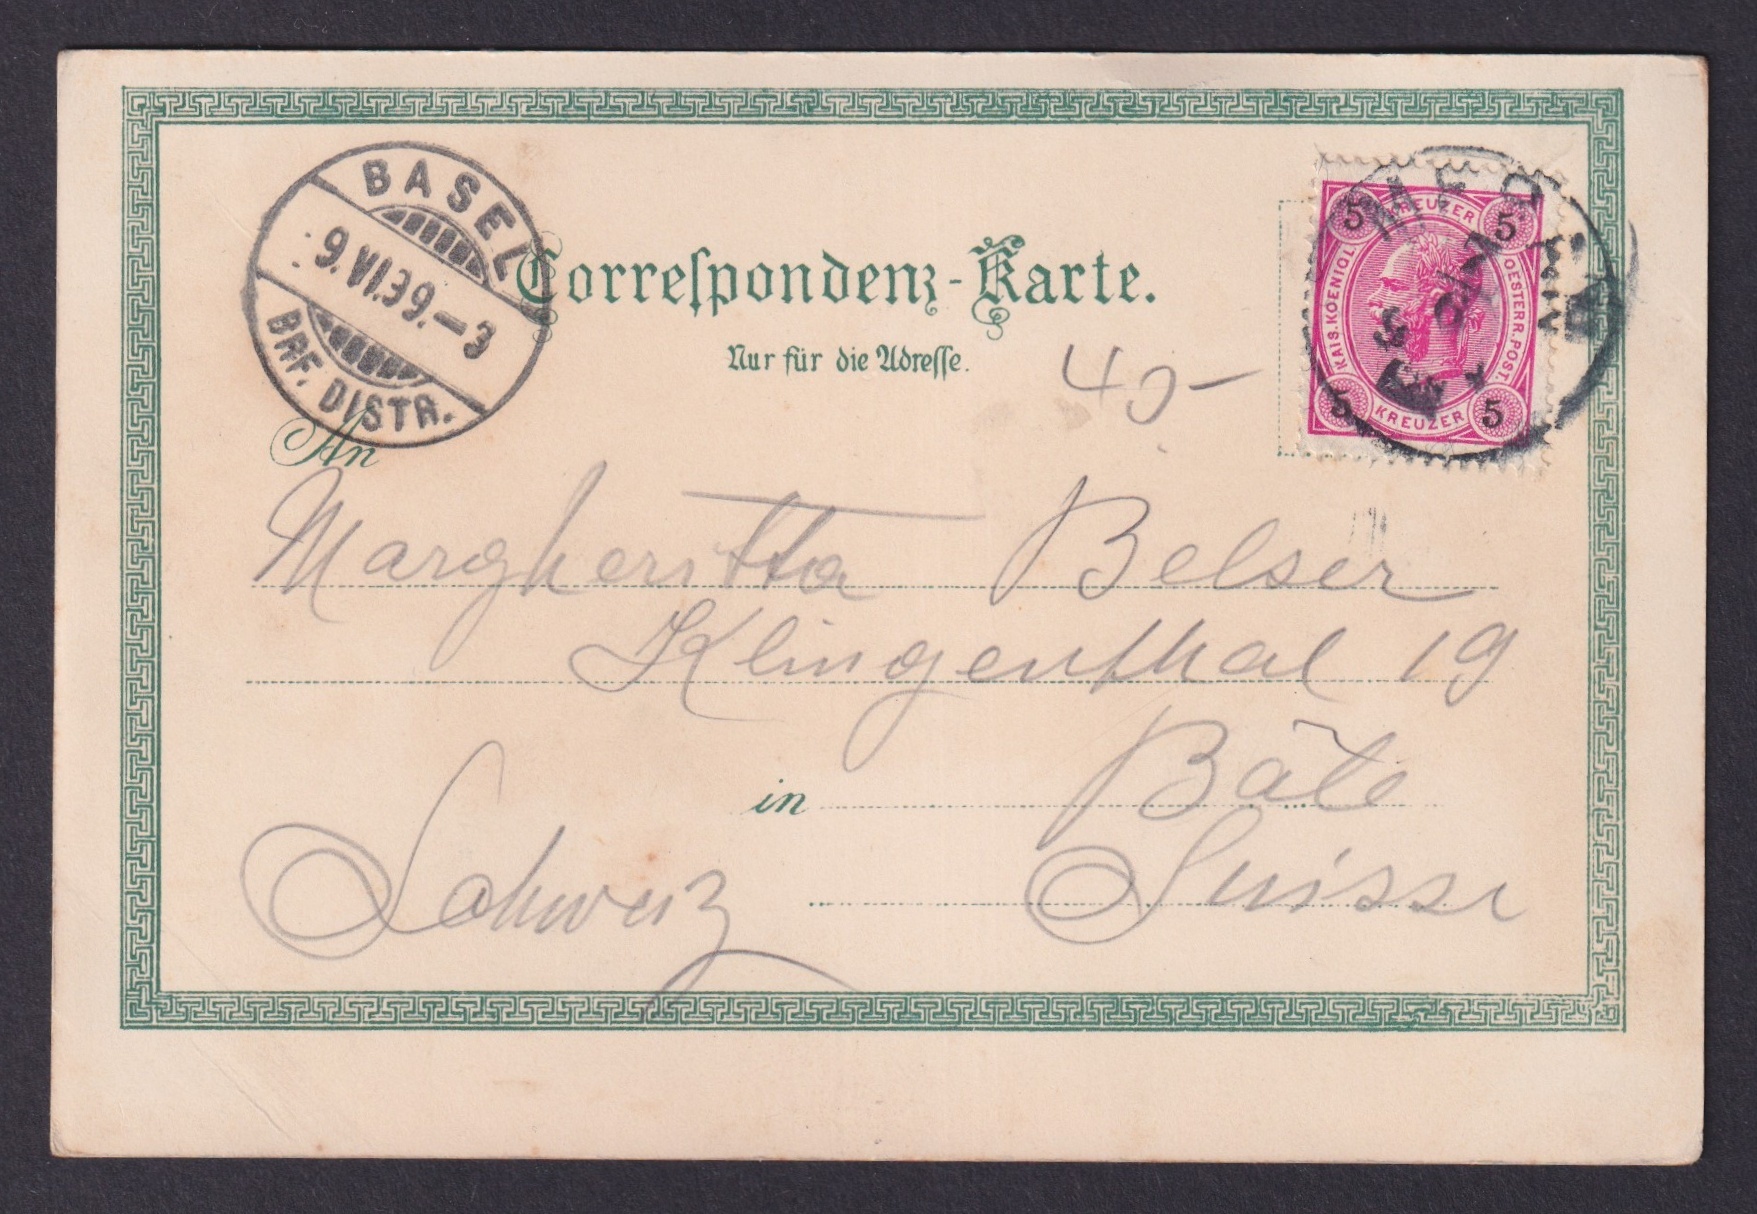 BASEL
9.VI.99.–3
BRF. DISTR.
Correſpondenz-Karte.
Nur für die Adreſſe.
40-
5 KREUZER 5
KAIS. KOENIGL. OESTERR. POST.
5 KREUZER 5
An
Margheritta Belser
Klingenthal 19
in Bâle
Schweiz Suisse